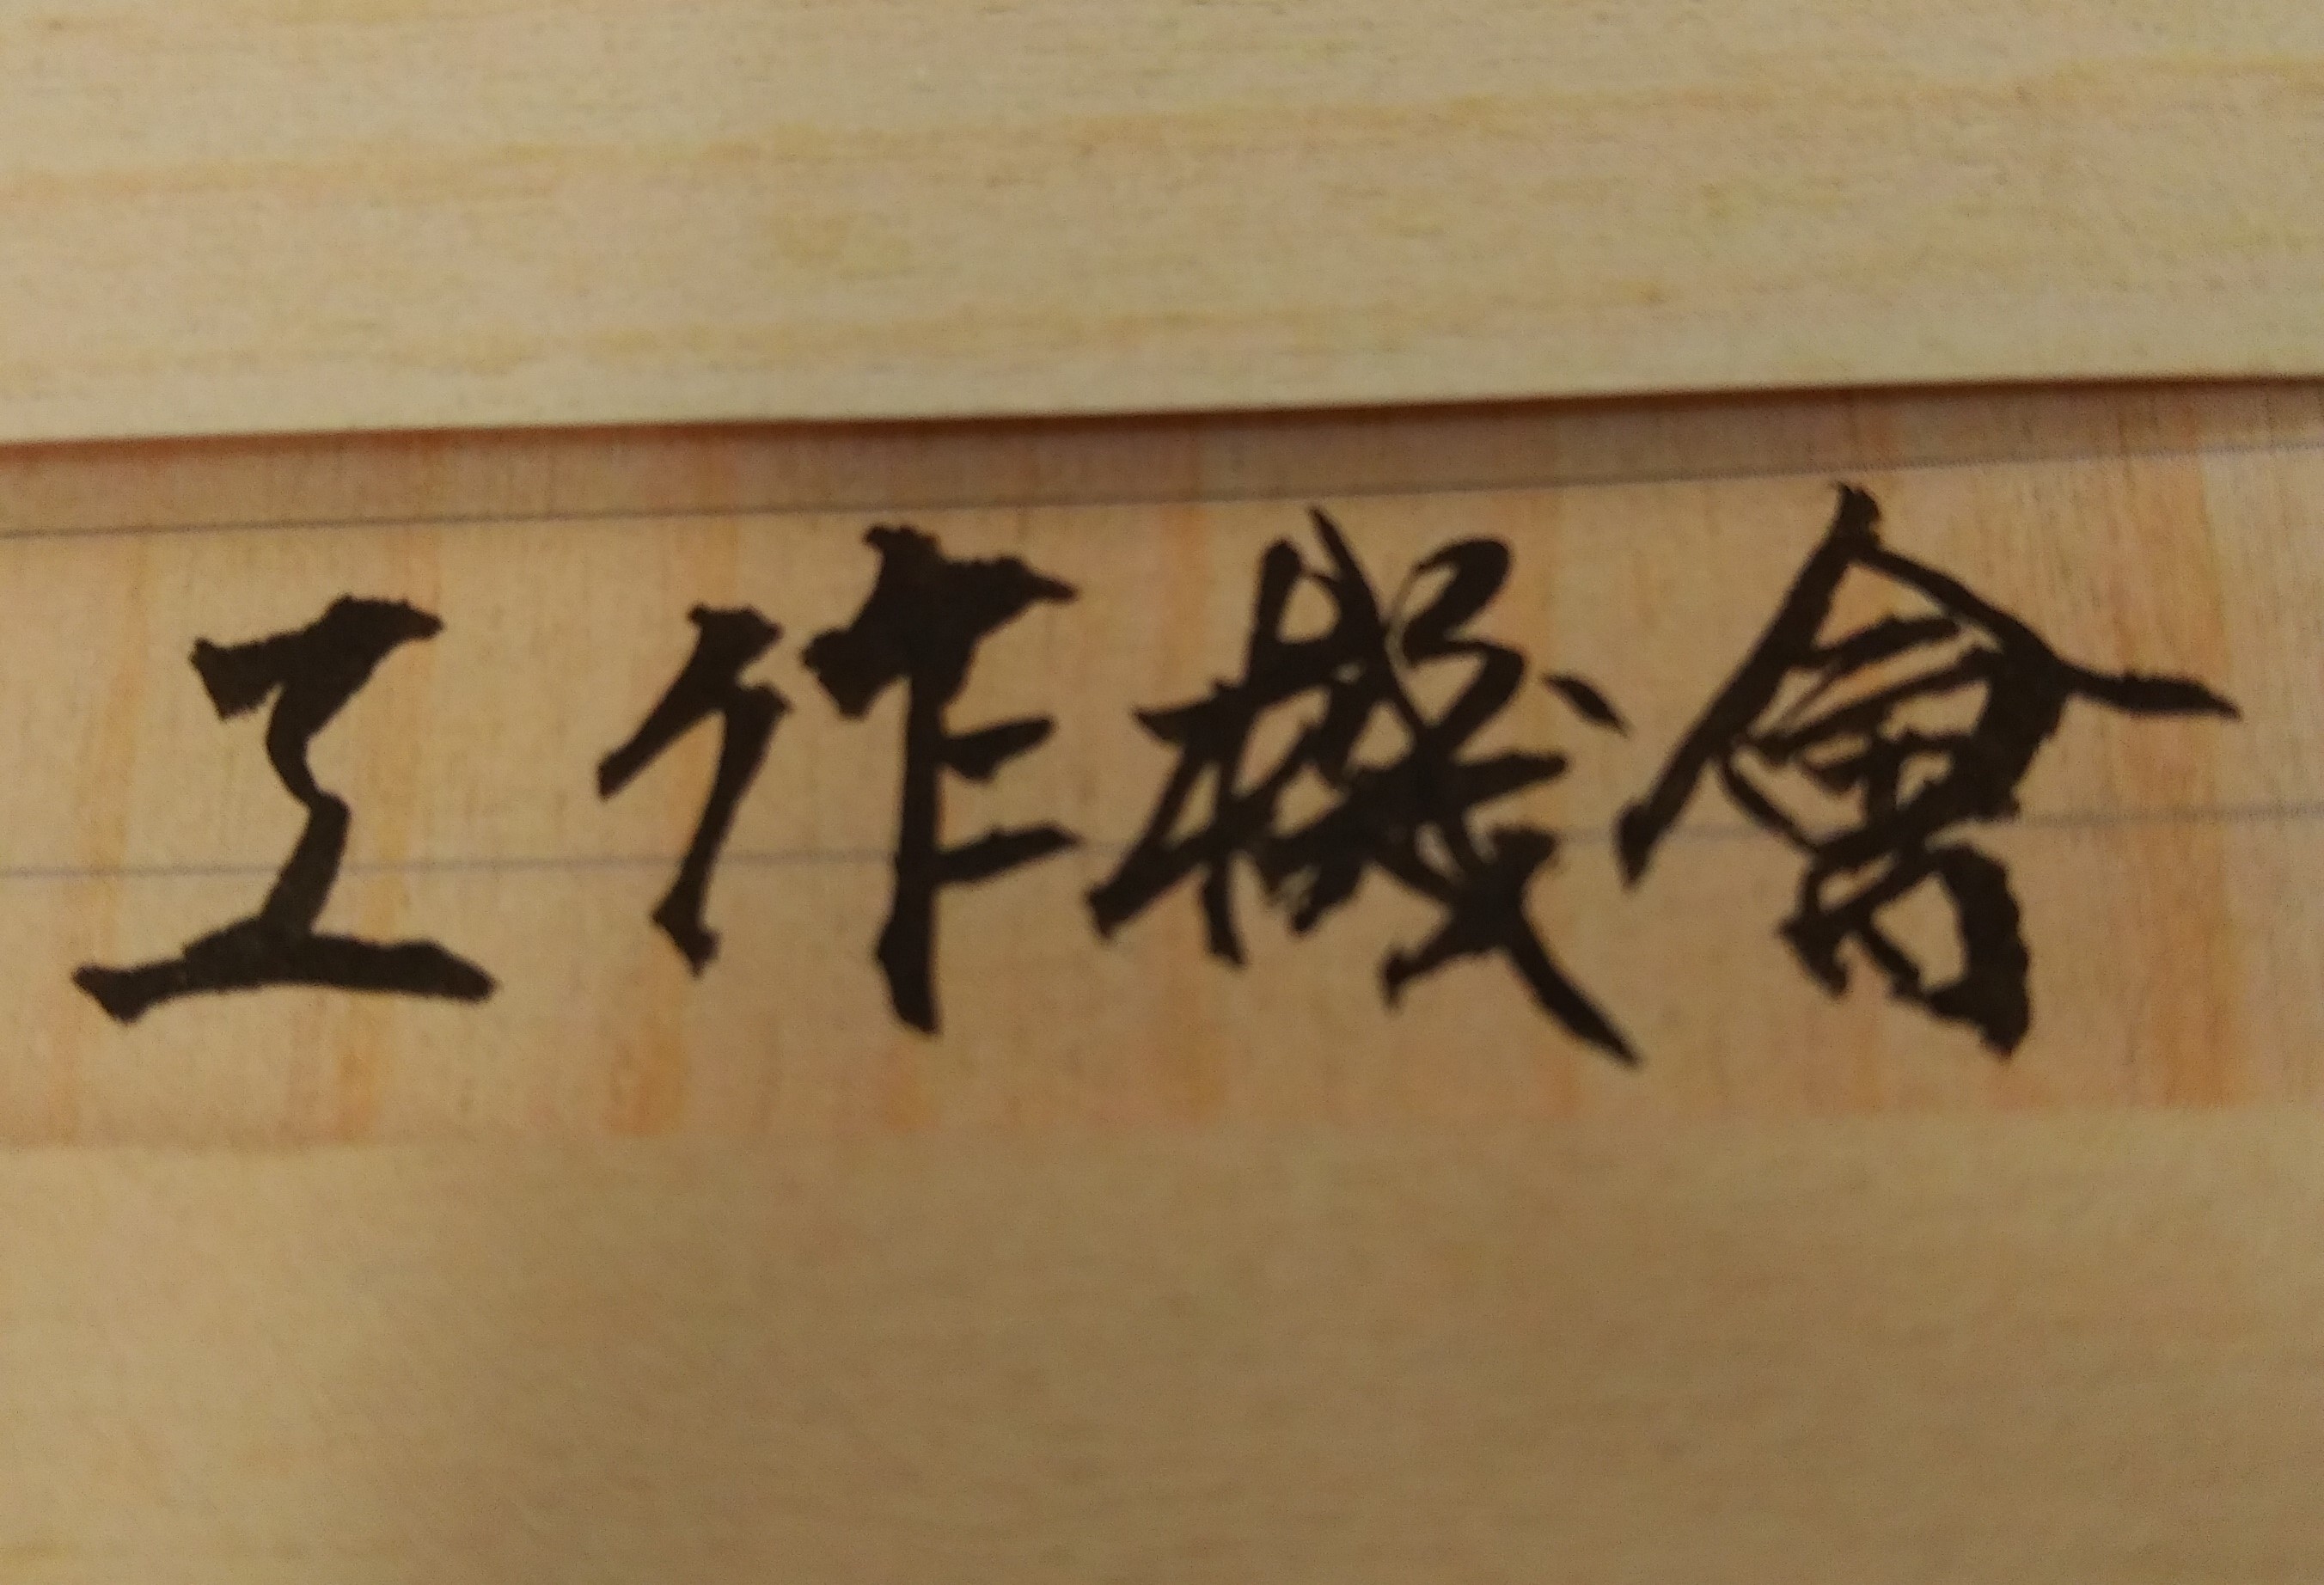 工作機會